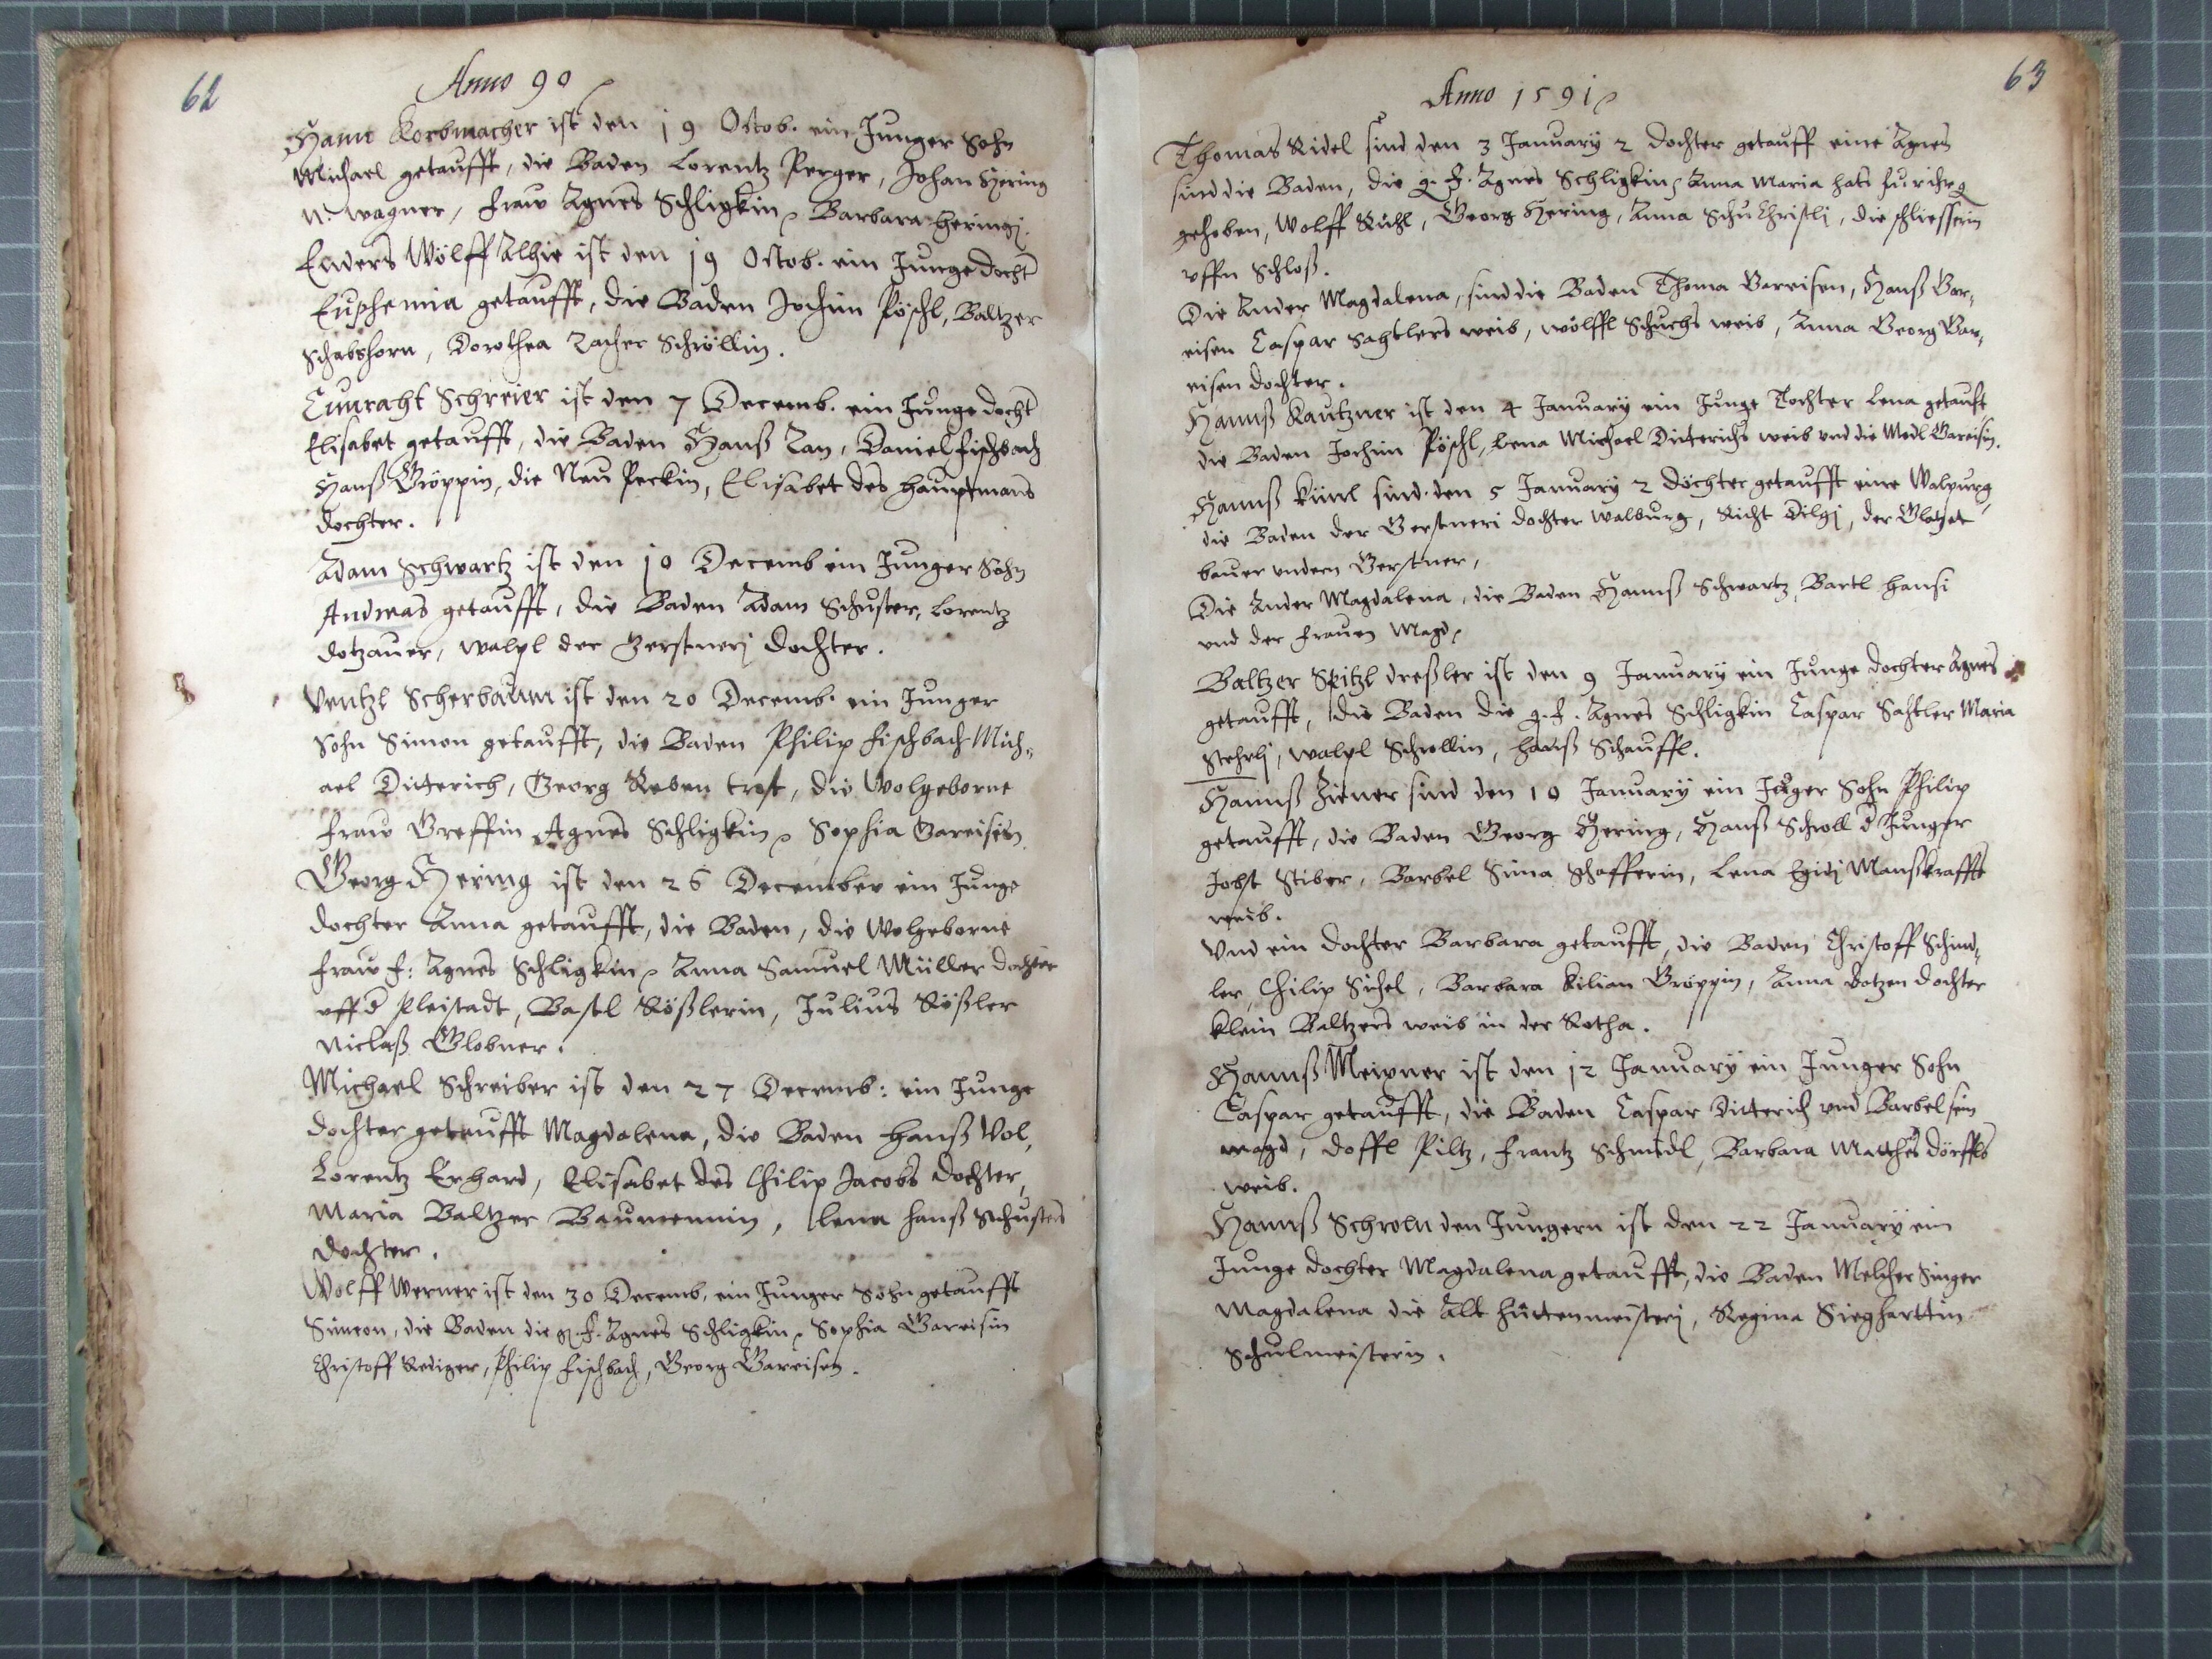 62
Anno 90
Hanns Korbmacher ist den 19 Octob. ein Junger Sohn
Michael getaufft, die Baden Lorentz Perger, Johan Hering
N. Wagner, fraw Agnes Schligkin, Barbara Heringj.
Enders Wölff Alhie ist den 19 Octob. ein Junge docht
Euphemia getaufft, die Baden Jochim Pöschl, Baltzer
Schabshorn, Dorothea Zacher Schröllin.
Cunraht Schreier ist den 7 Decemb. ein Junge docht
Elisabet getaufft, die Baden Hanß Zan, Daniel fischbach
Hanß Gröppin, die Neu Peckin, Elisabet des hauptmans
dochter.
Adam Schwartz ist den 10 Decemb ein Junger Sohn
Andreas getaufft, die Baden Adam Schuster, Lorentz
dotzauer, walpl der Gerstnerj dochter.
Ventzl Scherbaum ist den 20 Decemb. ein Junger
Sohn Simon getaufft, die Baden Philip fischbach Mich-
ael Ditterich, Georg Reben trost, die Wolgeborne
fraw Greffin Agnes Schligkin, Sophia Gareisin
Georg Hering ist den 26 December ein Junge
dochter Anna getaufft, die Baden, die Wolgeborne
fraw f: Agnes Schligkin, Anna Samuel Müller dochter
uff d Pleistadt, Bastl Rößlerin, Julius Rößler
Niclaß Globner.
Michael Schreiber ist den 27 Decemb: ein Junge
dochter getaufft Magdalena, die Baden Hanß Vol,
Lorentz Erhard, Elisabet des Philip Jacobs dochter,
Maria Baltzer Baumennin, Lena Hanß Schusters
dochter.
Wolff Werner ist den 30 Decemb. ein Junger Sohn getaufft
Simeon, die Baden die g. f. Agnes Schligkin, Sophia Gareisin
Christoff Rediger, Philip fischbach, Georg Gareisen.
63
Anno 1591
Thomas Ridel sind den 3 January 2 dochter getauff eine Agnes
sind die Baden, die g. f. Agnes Schligkin, Anna Maria hats
gehoben, Wolff Rühl, Georg Hering, Anna Schu Christlj, die schliesserin
uffn Schloß.
Die Ander Magdalena, sind die Baden Thoma Gareisen, Hanß Gar-
eisen Caspar Sahtlers weib, wölffl Schuchs weib, Anna Georg Gar-
eisen dochter.
Hannß Kautzner ist den 4 January ein Junge Tochter Lena getauft
die Baden Jochim Pöschl, Lena Michael Ditterichs weib und die Medl Gareisin.
Hannß Künl sind den 5 January 2 döchter getaufft eine Walpurg,
die Baden der Gerstneri dochter walburg, Richt Dilgj, der
bauer undern Gerstner,
Die Ander Magdalena, die Baden Hannß Schwartz, Bartl Hansi
und der frauen Magd,
Baltzer Spitzl dreßler ist den 9 January ein Junge dochter Agnes
getaufft, die Baden die g. f. Agnes Schligkin Caspar Sahtler Maria
Stehrlj, walpl Schrollin, Hanß Schauffl.
Hannß Ziener sind den 10 January ein Juger Sohn Philip
getaufft, die Baden Georg Hering, Hanß Schroll d Junger
Jobst Stiber, Barbel Sima Schafferin, Lena Egidj Manßkraffts
weib.
Und ein dochter Barbara getaufft, die Baden Christoff Schind-
ler, Philip Sichel, Barbara Kilian Gröppin, Anna Botzen dochter
klein Baltzers weib in der Rotha.
Hannß Meixner ist den 12 January ein Junger Sohn
Caspar getaufft, die Baden Caspar Ditterich und Barbel sein
magd, doffl Piltz, Frantz Schmidl, Barbara Matthes dörffls
weib.
Hannß Schroln den Jungern ist den 22 January ein
Junge dochter Magdalena getaufft, die Baden Melcher Singer
Magdalena die Alt hüttenmeisterj, Regina Siegharttin
Schulmeisterin.